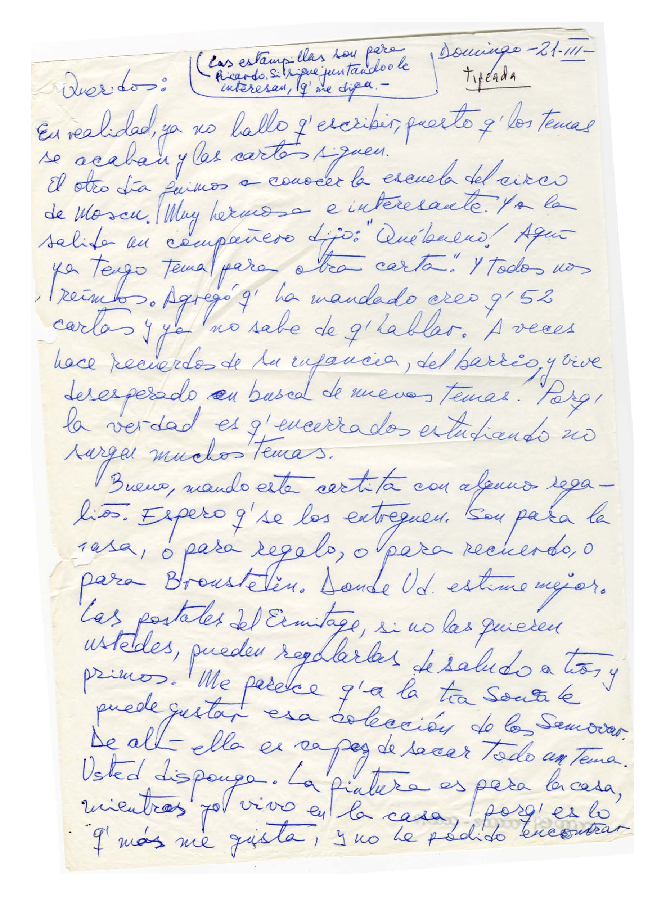 Las estampillas son para
Ricardo. Si sigue juntándo o le
interesan, q' me diga.-
Domingo -21-III-
tipeada
Queridos:
En realidad, ya no hallo q' escribir, puesto q' los temas
se acaban y las cartas siguen.
El otro día fuimos a conocer la escuela del circo
de Moscu. ¡Muy hermosa e interesante. Y a la
salida un compañero dijo: "Qué bueno! Aquí
ya tengo tema para otra carta". Y todos nos
reímos. Agregó q' ha mandado creo q' 52
cartas y ya no sabe de q' hablar. A veces
hace recuerdos de su infancia, del barrio, y vive
desesperado en busca de nuevos temas! Porq'
la verdad es q' encerrados estudiando no
surgen muchos temas.
Bueno, mando esta cartita con algunos rega-
litos. Espero q' se los entreguen. Son para la
casa, o para regalo, o para recuerdo, o
para Bronstein. Donde Ud. estime mejor.
Las postales del Ermitage, si no las quieren
ustedes, pueden regalarlas de saludo a tíos y
primos. Me parece q' a la tía Sonia le
puede gustar esa colección de los Samovar.
De ahí ella es capaz de sacar todo un tema.
Usted disponga. La pintura es para la casa,
mientras yo vivo en la casa porq' es lo
q' más me gusta, y no he pódido encontrar